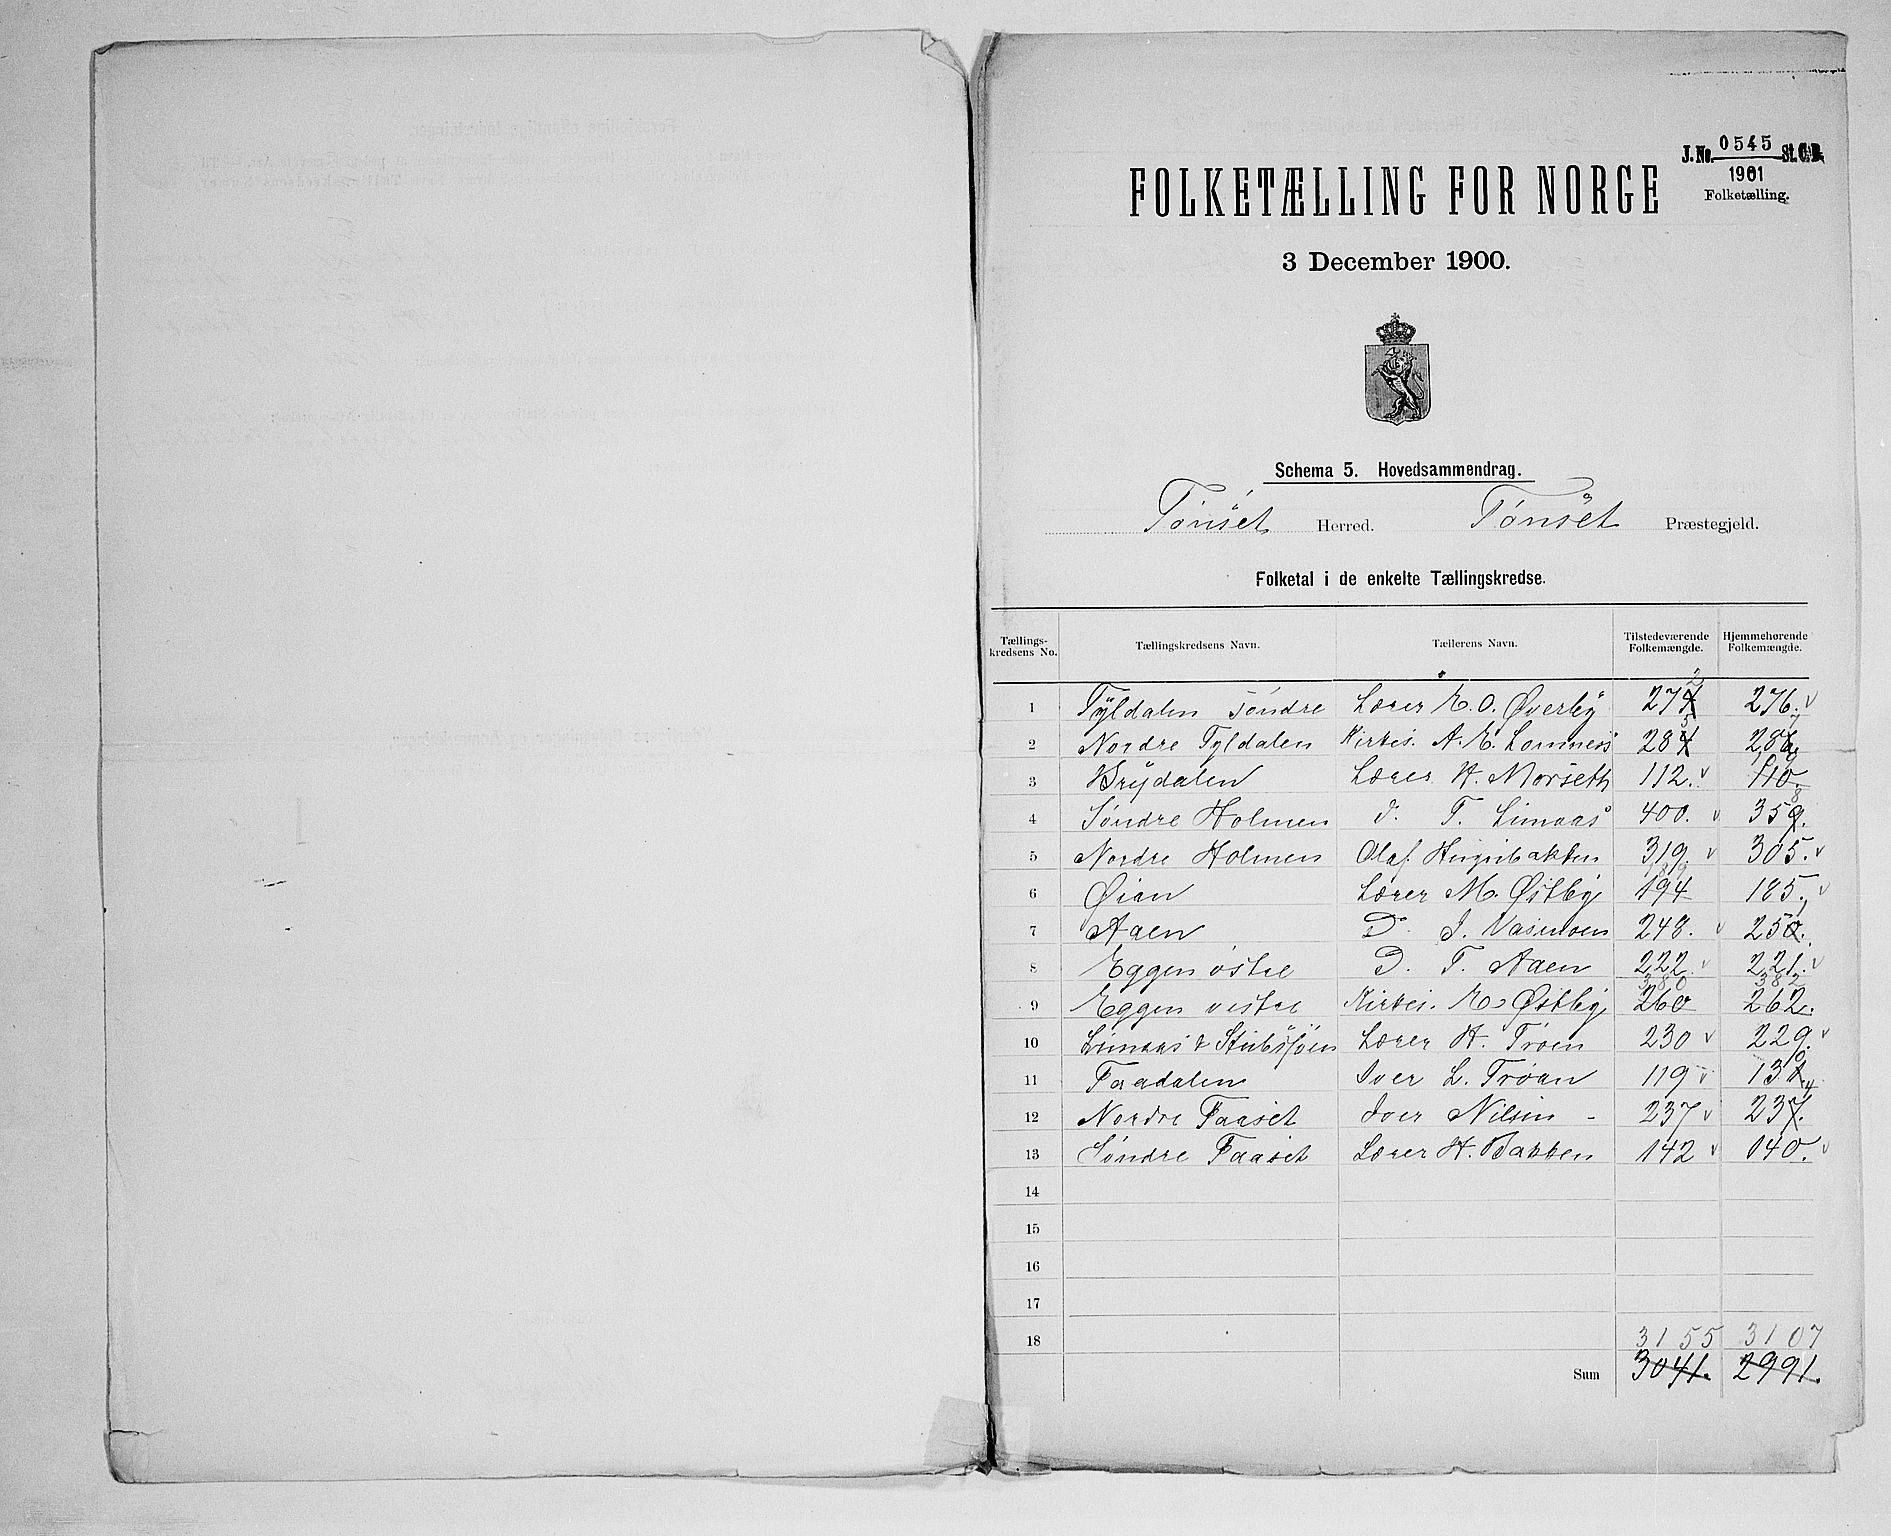 J. No. 0545 St. C. B.
1901
Folketælling.
FOLKETÆLLING FOR NORGE
3 December 1900.
Schema 5. Hovedsammendrag.
Tönset Herred. Tönset Præstegjeld.
Folketal i de enkelte Tællingskredse.
Tællings-kredsens No. Tællingskredsens Navn. Tællerens Navn. Tilstedeværende Folkemængde. Hjemmehørende Folkemængde.
1 Tyldalen söndre Lærer E. O. Øverby 272 276.
2 Nordre Tyldalen Kirkes. A. E. Lomness 285 287
3 Brydalen Lærer H. Morseth 112. 110.
4 Søndre Holmen d. T. Limaas 400. 358
5 Nordre Holmen Olaf 319. 305.
6 Øian Lærer M. Østby 194 185.
7 Aaen D. J. Vasmoen 248. 250.
8 Eggen østre D. T. Aaen 222. 221.
9 Eggen vestre Kirkes. E. Østby 380 260 382 262.
10 Limaas & Stubsjöen Lærer H. Trøen 230 229.
11 Faadalen Iver L. Trøan 119 130
12 Nordre Faaset Iver Nilsen - 237 234
13 Søndre Faaset Lærer H. Bakken 142 140.
14
15
16
17
18
3155 3107
Sum 3041. 2991.